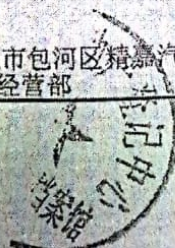 市包河区精嘉汽
经营部
登记中心
档案馆